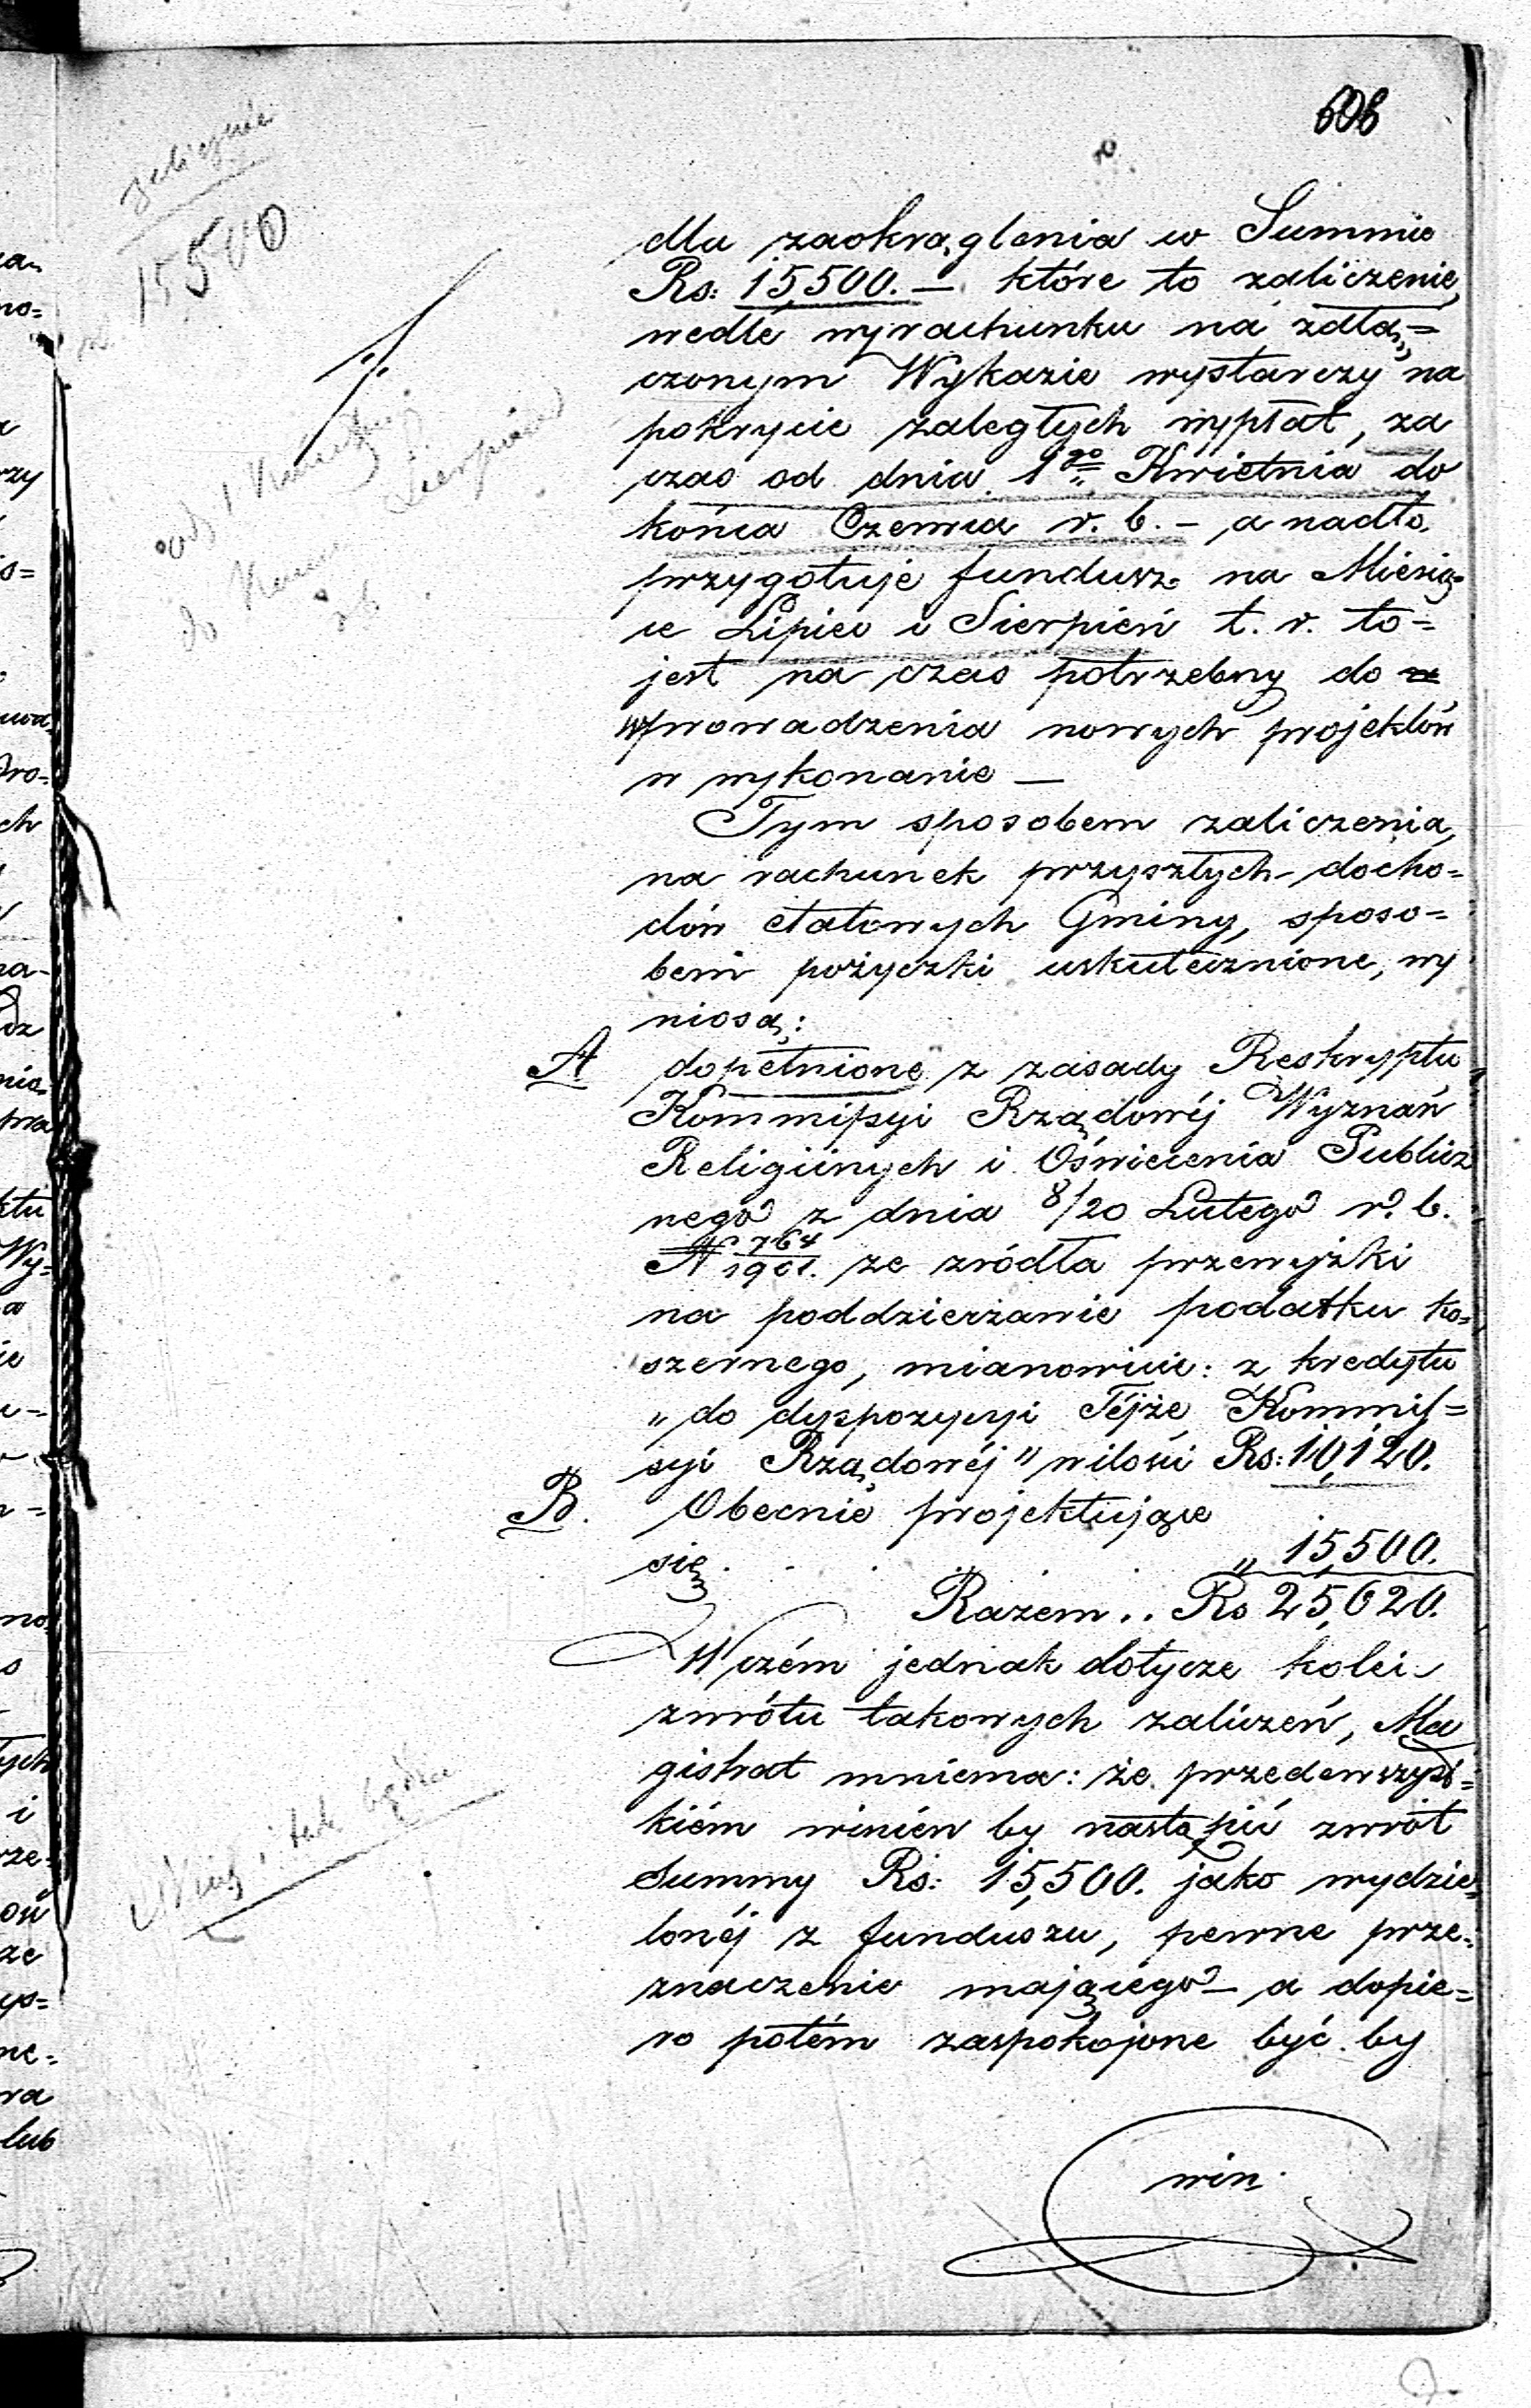 606
zaliczenie
15500
dla zaokrąglenia w Summie
Rs: 15,500. — które to zaliczenie,
wedle wyrachunku na załą=
czonym Wykazie wystarczy na
pokrycie zaległych wypłat, za
czas od dnia 1go Kwietnia do
końca Czerwca r. b. – a nadto,
przygotuje fundusz na Miesią=
ce Lipiec i Sierpień t. r. to=
jest na czas potrzebny do
wprowadzenia nowych projektów
w wykonanie —
od 1 Kwietnia
do końca Sierpnia
rb
Tym sposobem zaliczenia,
na rachunek przyszłych docho=
dów etatowych Gminy, sposo=
bem pożyczki uskutecznione, wy
niosą:
A dopełnione z zasady Reskryptu
Kommissyi Rządowéj Wyznań
Religijnych i Oświecenia Publicz
nego z dnia 8/20 Lutego r. b.
N 764/1901. ze zródła przewyżki
na poddzierżawie podatku ko=
szernego, mianowicie: z kredytu
„do dyspozycyi Téjże Kommis=
syi Rządowéj" w ilości Rs: 10,120.
B. Obecnie projektujące
się . . . . . „ 15,500.
Razem . . Rs 25,620.
W czém jednak dotycze kolei
zwrótu takowych zaliczeń, Ma
gistrat mniema: że przedewszyst=
kiém winién by nastąpić zwrót
Summy Rs: 15,500. jako wydzie=
lonéj z funduszu, pewne prze=
znaczenie mającego – a dopie=
ro potém zaspokojone być by
win